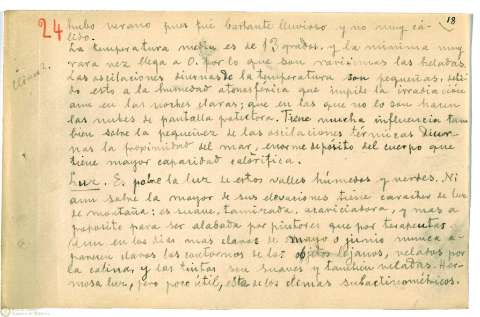 24
18
Clima 2.
hubo verano pues fué bastante lluvioso y no muy cá-
lido.
La temperatura media es de 13 grados, y la mínima muy
rara vez llega a 0. por lo que son rarísimas las heladas.
Las oscilaciones diurnas de la temperatura son pequeñas, debi-
do esto a la humedad atmosférica que impide la irradiación
aun en las noches claras; que en las que no lo son hacen
las nubes de pantalla protectora. Tiene mucha influencia tam
bien sobre la pequeñez de las oscilaciones térmicas diur-
nas la proximidad del mar, enorme depósito del cuerpo que
tiene mayor capacidad calorífica.
Luz. Es pobre la luz de estos valles húmedos y verdes. Ni
aun sobre la mayor de sus elevaciones tiene caracter de luz
de montaña: es suave, tamizada, acariciadora, y mas a
propósito para ser alabada por pintores que por terapeutas
Aun en los dias mas claros de mayo o junio nunca a-
parecen claros los contornos de los objetos lejanos, velados por
la calina, y las tintas son suaves y tambien veladas. Her-
mosa luz, pero poco útil, esta de los climas subactinométricos.